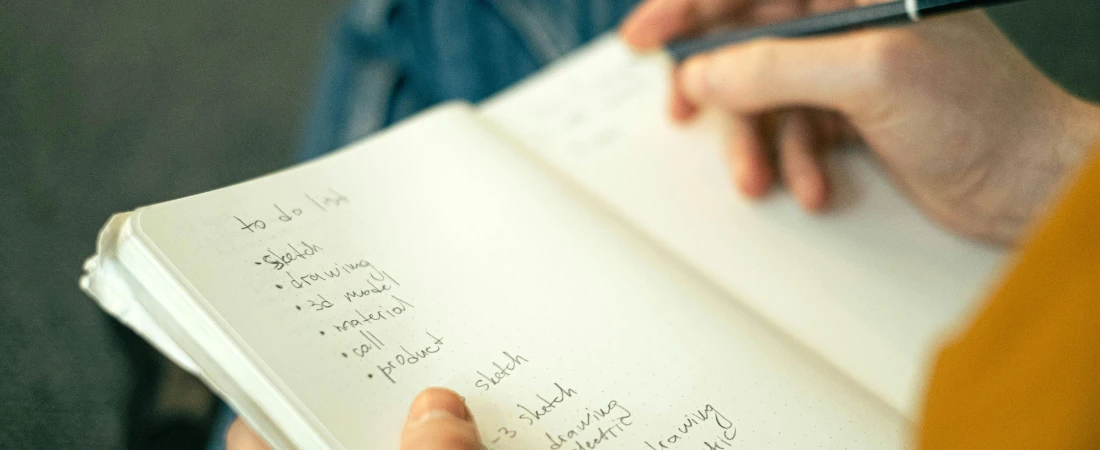 to do list
• sketch
• drawing
• 3d model
• material
• call
• product
sketch
-3 sketch
drawing
drawing